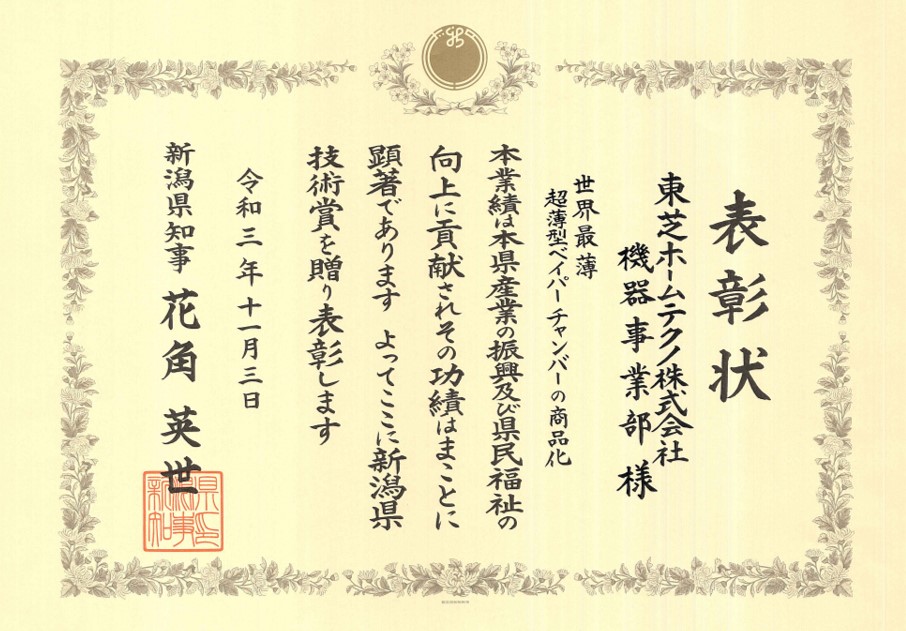 表彰状
東芝ホームテクノ株式会社
機器事業部 様
世界最薄
超薄型ベイパーチャンバーの商品化
本業績は本県産業の振興及び県民福祉の
向上に貢献されその功績はまことに
顕著であります よってここに新潟県
技術賞を贈り表彰します
令和三年十一月三日
新潟県知事 花角 英世
新潟県知事印